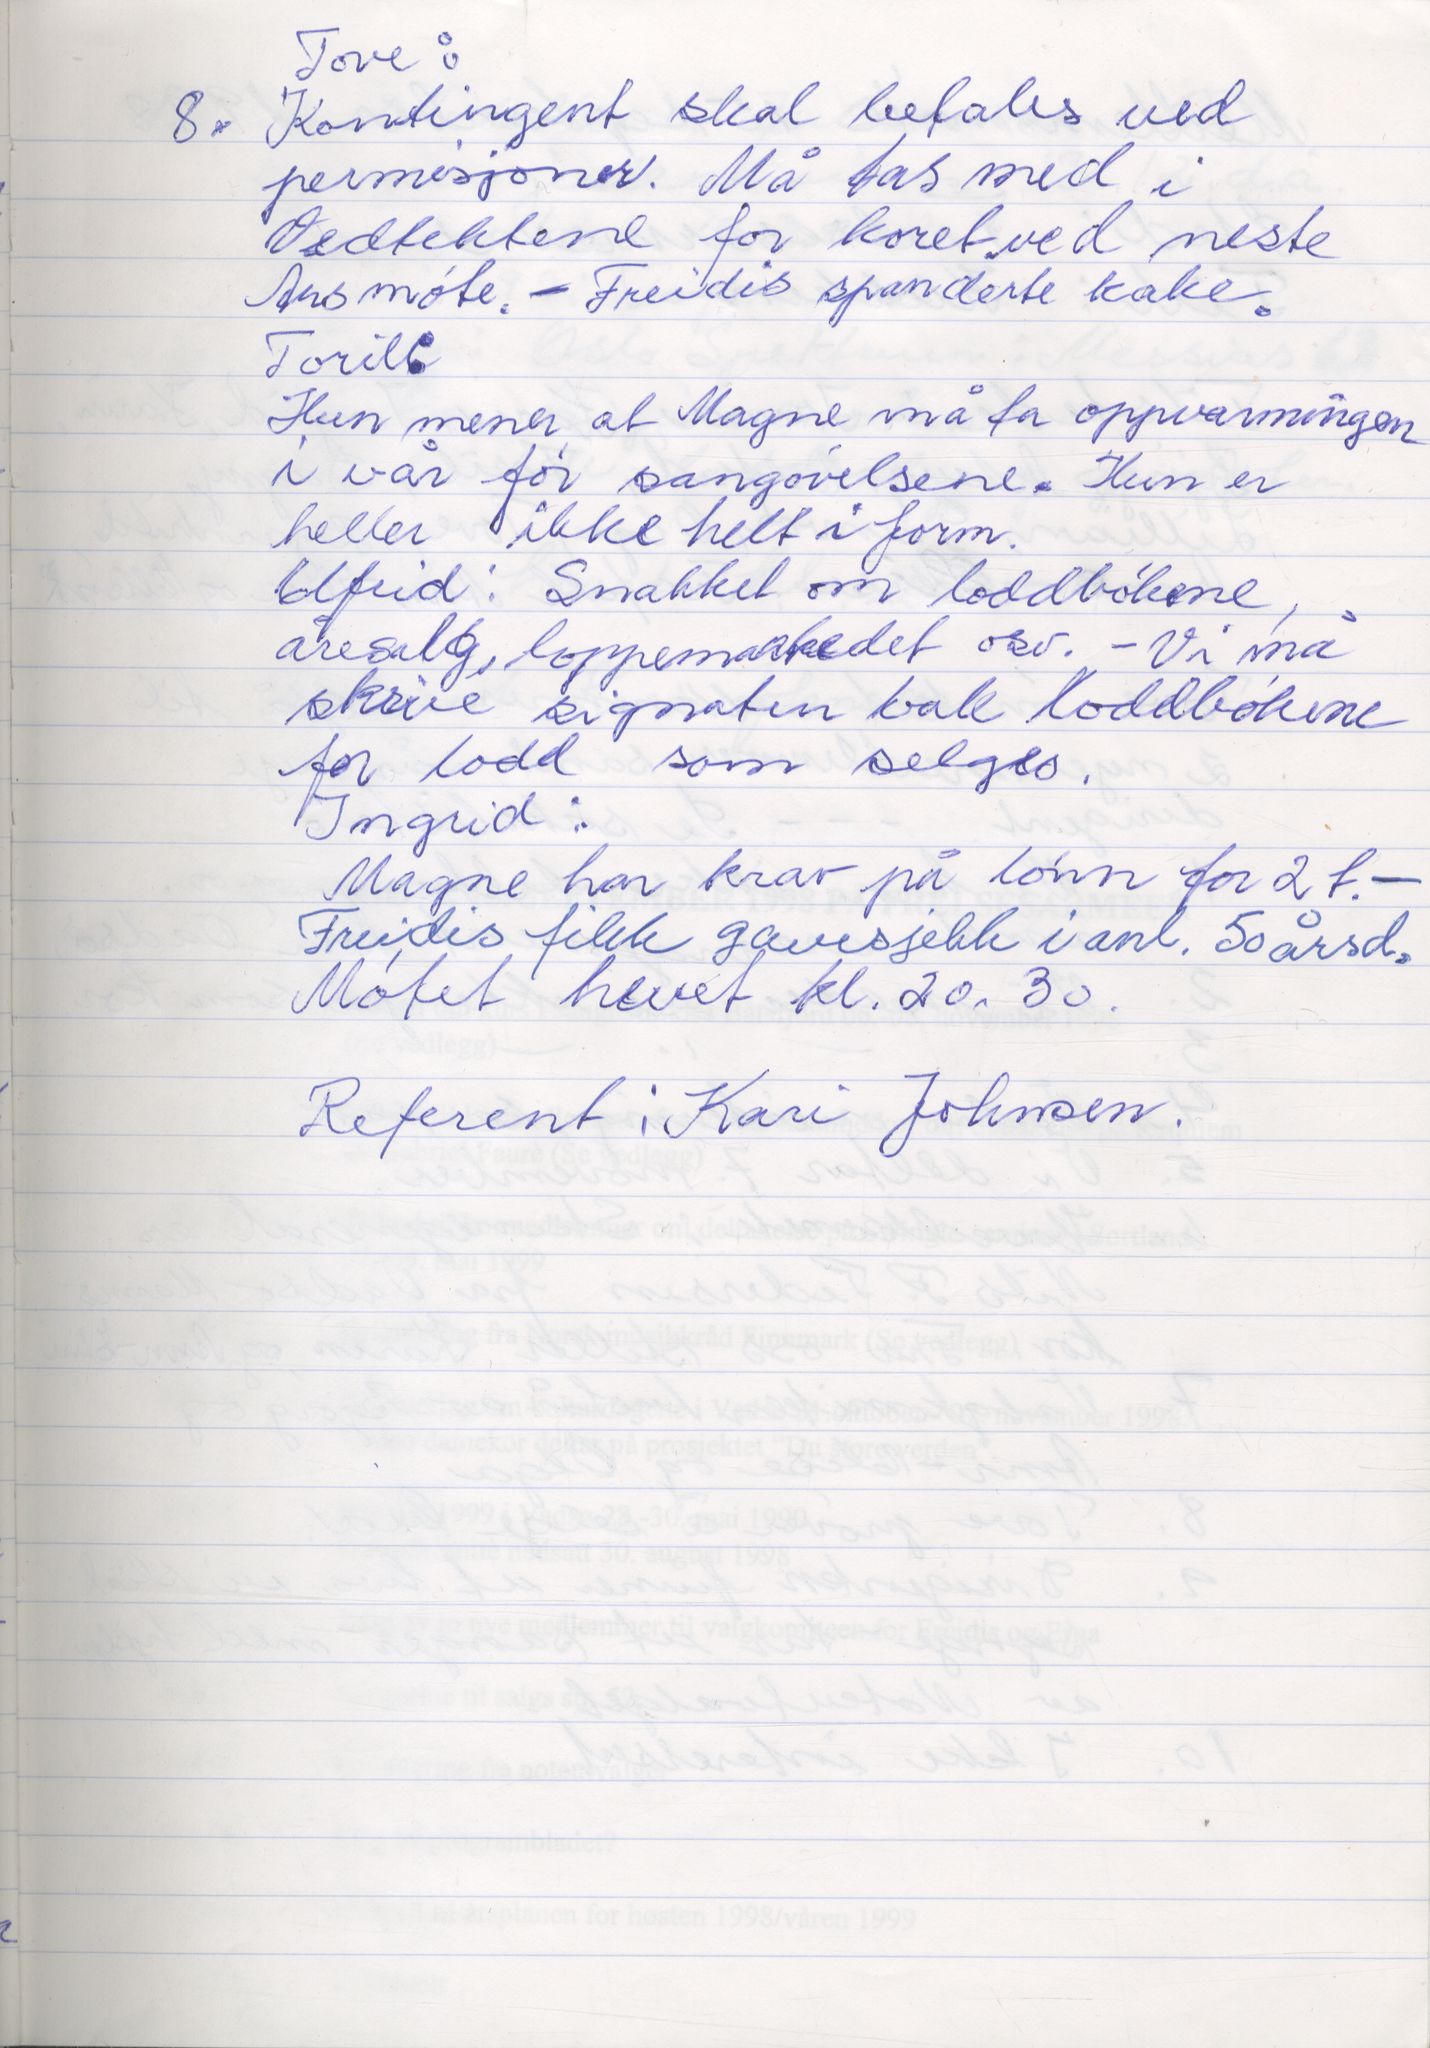 Tove:
8. Kontingent skal betales ved
permisjoner. Må tas med i
Vedtektene for koret ved neste
Årsmøte. - Freidis spanderte kake.
Torill:
Hun mener at Magne må ta oppvarmingen
i vår før sangøvelsene. Hun er
heller ikke helt i form.
Ulfrid: Snakket om loddbøkene,
åresalg, loppemarkedet osv. - Vi må
skrive signaten bak loddbøkene
for lodd som selges.
Ingrid:
Magne har krav på lønn for 2 t. -
Freidis fikk gavesjekk i anl. 50 årsd.
Møtet hevet kl. 20.30.
Referent: Kari Johnsen.